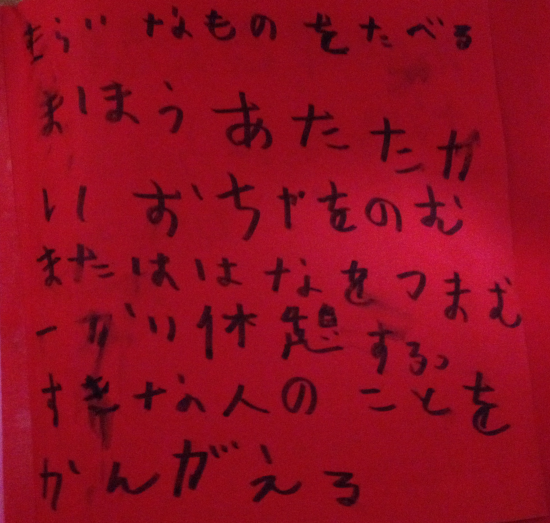 きらいなものをたべる
まほう あたたか
い おちゃをのむ
またははなをつまむ
一かい休憩する。
すきな人のことを
かんがえる